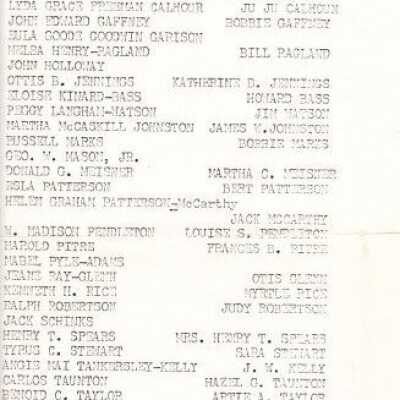 LYDA GRACE FREEMAN CALHOUR JU JU CALHOUN
JOHN EDWARD GAFFNEY BOBBIE GAFFNEY
EULA GOODE GOODWIN GARISON
MELBA HENRY-RAGLAND BILL RAGLAND
JOHN HOLLOWAY
OTTIS B. JENNINGS KATHERINE D. JENNINGS
ELOISE KINARD-BASS HOWARD BASS
PEGGY LANGHAM-WATSON JIM WATSON
MARTHA McCASKILL JOHNSTON JAMES W.JOHNSTON
RUSSELL MARKS BOBBIE MARKS
GEO. W. MASON, JR.
DONALD G. MEISNER MARTHA C. MEISNER
PATTERSON BERT PATTERSON
HELEN GRAHAM PATTERSON-McCarthy
JACK MCCARTHY
W. MADISON PENDLETON LOUISE S. PENDLETON
HAROLD PITRE FRANCES B. PITRE
MABEL PYLE-ADAMS
JEANE RAY-GLENN OTIS GLENN
KENNETH H. RICE MYRTLE RICE
RALPH ROBERTSON JUDY ROBERTSON
JACK SCHINKS
HENRY T. SPEARS MRS. HENRY T. SPEARS
TYRUS C. STEWART SARA STEWART
ANGIE MAI TANKERSLEY-KELLY J. W. KELLY
CARLOS TAUNTON HAZEL G. TAUNTON
BENOID C. TAYLOR ARTIE A. TAYLOR